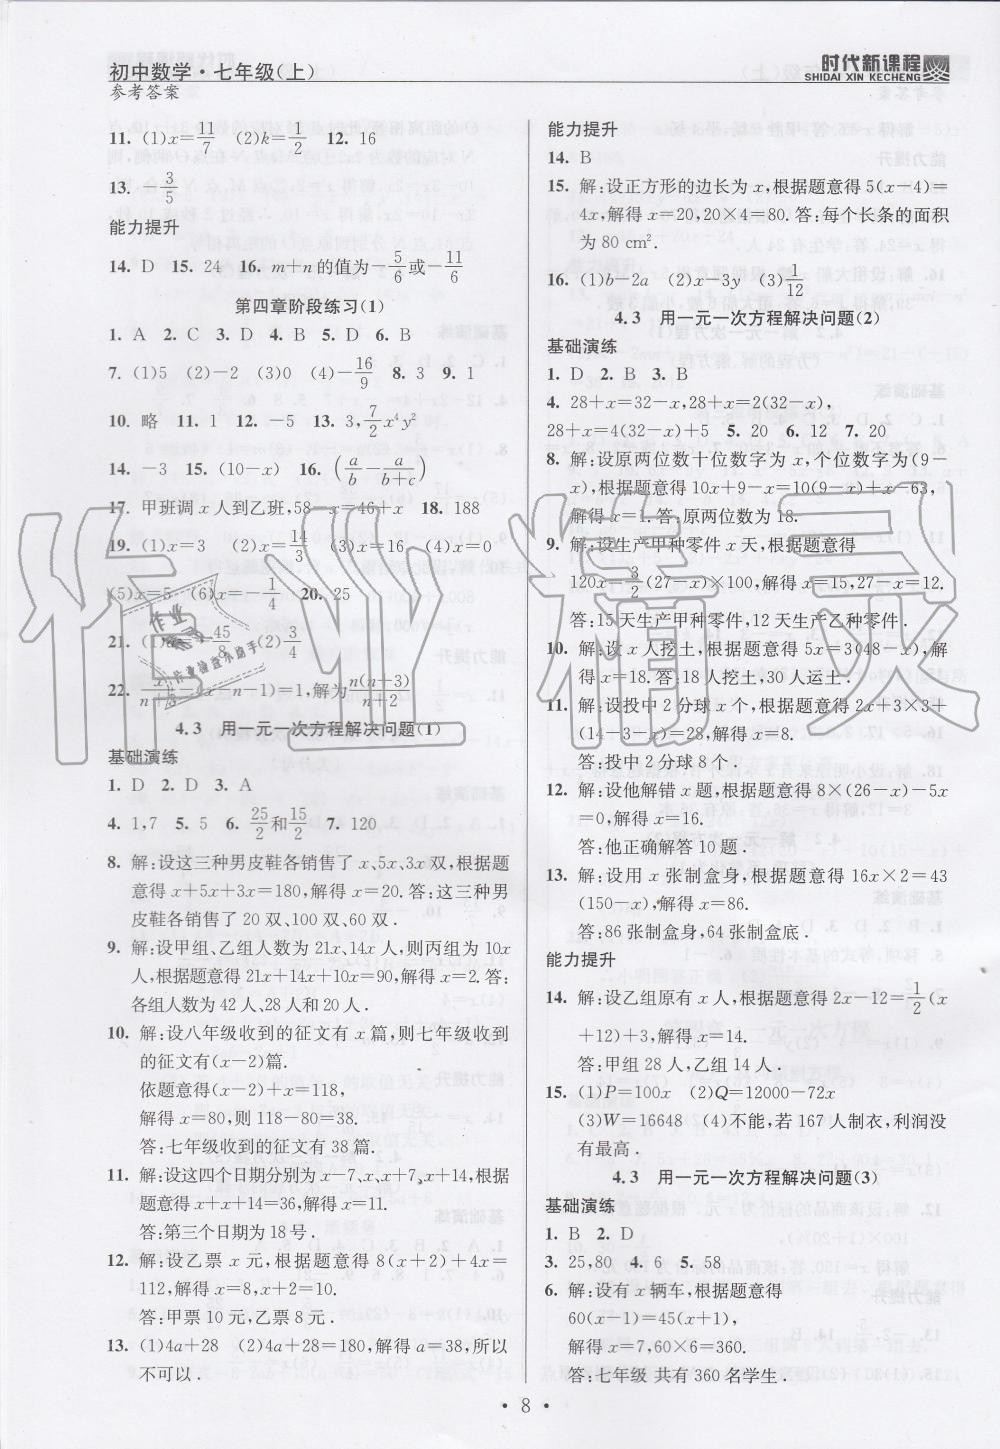 初中数学·七年级(上)
参考答案
时代新课程
SHIDAI XIN KECHENG
11. (1)x=11/7 (2)k=1/2 12. 16
13. -3/5
能力提升
14. D 15. 24 16. m+n的值为-5/6或-11/6
第四章阶段练习(1)
1. A 2. C 3. D 4. B 5. D 6. B
7. (1)5 (2)-2 (3)0 (4)-16/9 8. 3 9. 1
10. 略 11. 1 12. -5 13. 3,7/2x⁴y²
14. -3 15. (10-x) 16. (a/b-a/(b+c))
17. 甲班调x人到乙班,58-x=46+x 18. 188
19. (1)x=3 (2)x=14/3 (3)x=16 (4)x=0
(5)x=5 (6)x=-1/4 20. 25
21. (1)a=45/8 (2)3/4
22. 解为n(n+3)/(n+2)
4.3 用一元一次方程解决问题(1)
基础演练
1. D 2. D 3. A
4. 1,7 5. 5 6. 25/2和15/2 7. 120
8. 解:设这三种男皮鞋各销售了x、5x、3x双,根据题
意得x+5x+3x=180,解得x=20.答:这三种男
皮鞋各销售了20双、100双、60双.
9. 解:设甲组、乙组人数为21x、14x人,则丙组为10x
人,根据题意得21x+14x+10x=90,解得x=2.答:
各组人数为42人、28人和20人.
10. 解:设八年级收到的征文有x篇,则七年级收到
的征文有(x-2)篇.
依题意得(x-2)+x=118,
解得x=80,则118-80=38.
答:七年级收到的征文有38篇.
11. 解:设这四个日期分别为x-7、x、x+7、x+14,根据
题意得x+x+14=36,解得x=11.
答:第三个日期为18号.
12. 解:设乙票x元,根据题意得8(x+2)+4x=
112,解得x=8,x+2=10.
答:甲票10元,乙票8元.
13. (1)4a+28 (2)4a+28=180,解得a=38,所以
不可以.
能力提升
14. B
15. 解:设正方形的边长为x,根据题意得5(x-4)=
4x,解得x=20,20×4=80.答:每个长条的面积
为80 cm².
16. (1)b-2a (2)x-3y (3)1/12
4.3 用一元一次方程解决问题(2)
基础演练
1. D 2. B 3. B
4. 28+x=32-x,28+x=2(32-x),
28+x=4(32-x)+5 5. 20 6. 12 7. 20
8. 解:设原两位数十位数字为x,个位数字为(9-
x),根据题意得10x+9-x=10(9-x)+x-63,
解得x=1.答:原两位数为18.
9. 解:设生产甲种零件x天,根据题意得
120x=3/2(27-x)×100,解得x=15,27-x=12.
答:15天生产甲种零件,12天生产乙种零件.
10. 解:设x人挖土,根据题意得5x=3(48-x),解
得x=18.答:18人挖土,30人运土.
11. 解:设投中2分球x个,根据题意得2x+3×3+
(14+3-x)=28,解得x=8.
答:投中2分球8个.
12. 解:设他解错x题,根据题意得8×(26-x)-5x
=0,解得x=16.
答:他正确解答10题.
13. 解:设用x张制盒身,根据题意得16x×2=43
(150-x),解得x=86.
答:86张制盒身,64张制盒底.
能力提升
14. 解:设乙组原有x人,根据题意得2x-12=1/2(x
+12)+3,解得x=14.
答:甲组28人,乙组14人.
15. (1)P=100x (2)Q=12000-72x
(3)W=16648 (4)不能,若167人制衣,利润没
有最高.
4.3 用一元一次方程解决问题(3)
基础演练
1. B 2. D
3. 25,80 4. 6 5. 58
6. 解:设有x辆车,根据题意得
60(x-1)=45(x+1),
解得x=7,60×6=360.
答:七年级 共有360名学生.
·8·